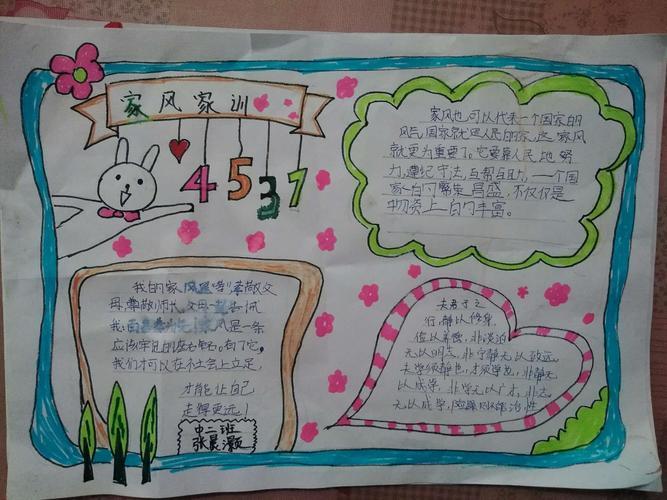 家风家训
4 5 3 7
家风也可以代表一个国家的
风气,国家就是人民的家,这家风
就更为重要了。它要靠人民地努
力,遵纪守法,互帮互助,一个国
家的繁荣昌盛,不仅仅是
物质上的丰富。
我的家风是"孝"孝敬父
母,尊敬师长,父母一起告诉
我:
应该牢记的座右铭。有了它,
我们才可以在社会上立足,
才能让自己
走得更远!
中二班
张晨灏
夫君子之
行,静以修身,
俭以养德,非淡泊
无以明志,非宁静无以致远。
夫学须静也,才须学也,非静无
以成学,非学无以广才,非志
无以成学,险躁则不能治性